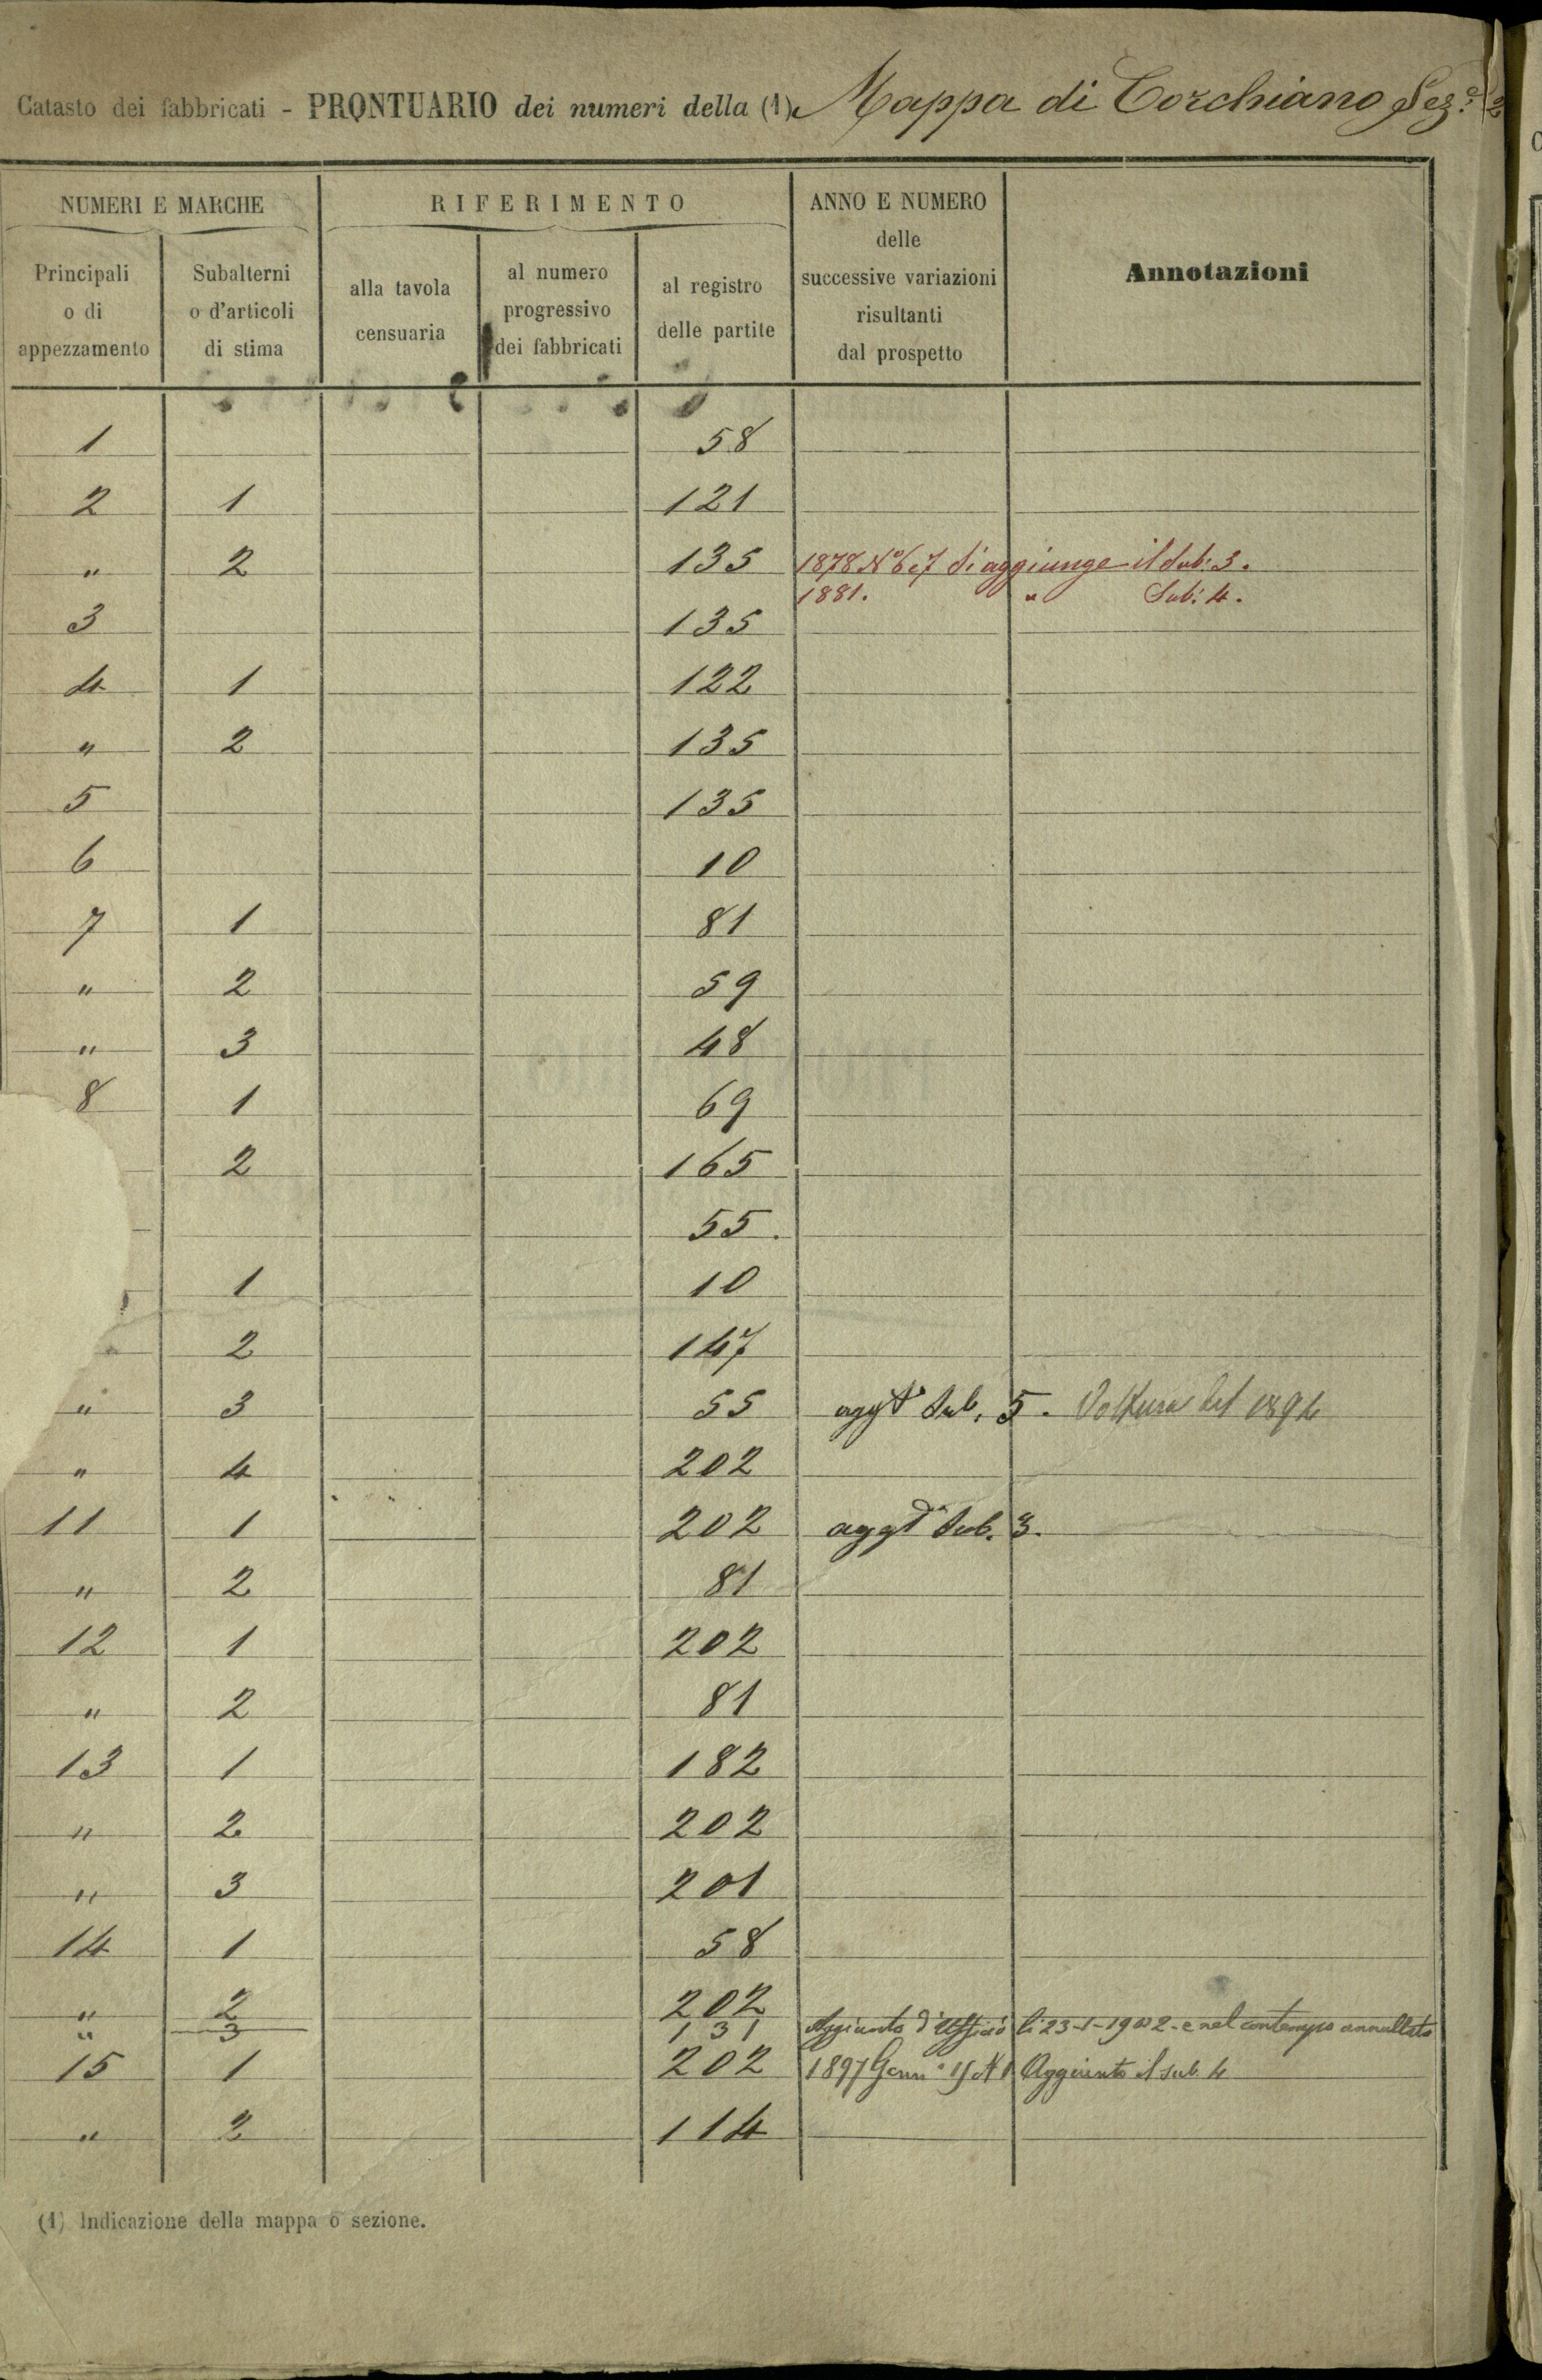 Catasto dei fabbricati - PRONTUARIO dei numeri della (1) Mappa di Corchiano Sez.e 2
NUMERI E MARCHE
RIFERIMENTO
ANNO E NUMERO
delle
successive variazioni
risultanti
dal prospetto
Annotazioni
Principali
o di
appezzamento
Subalterni
o d'articoli
di stima
alla tavola
censuaria
al numero
progressivo
dei fabbricati
al registro
delle partite
1 58
2 1 121
" 2 135 1878 No 6e7 Si aggiunge il Sub: 3.
1881. " Sub: 4.
3 135
4 1 122
" 2 135
5 135
6 10
7 1 81
" 2 59
" 3 48
8 1 69
2 165
55.
1 10
2 147
" 3 55 aggto Sub. 5. Voltura del 1894
" 4 202
11 1 202 aggto Sub. 3.
" 2 81
12 1 202
" 2 81
13 1 182
" 2 202
" 3 201
14 1 58
" 2 202
" 3 131 Aggiunto d'Ufficio li 23-1-1902 - e nel contempo annullato
15 1 202 1897 Genn° Aggiunto il sub 4
" 2 114
(1) Indicazione della mappa o sezione.